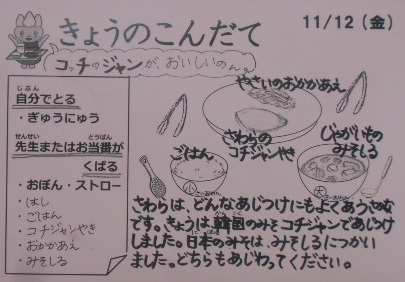 きょうのこんだて
11/12(金)
コッチのジャンが、おいしいのん。
自分でとる
・ぎゅうにゅう
先生またはお当番が
くばる
・おぼん・ストロー
・はし
・ごはん
・コチジャンやき
・おかかあえ
・みそしる
やさいのおかかあえ
さわらの
コチジャンやき
ごはん
じゃがいもの
みそしる
小
大
さわらは、どんなあじつけにもよくあうさかな
です。きょうは、韓国のみそコチジャンであじつけ
しました。日本のみそは、みそしるにつかい
ました。どちらもあじわってください。